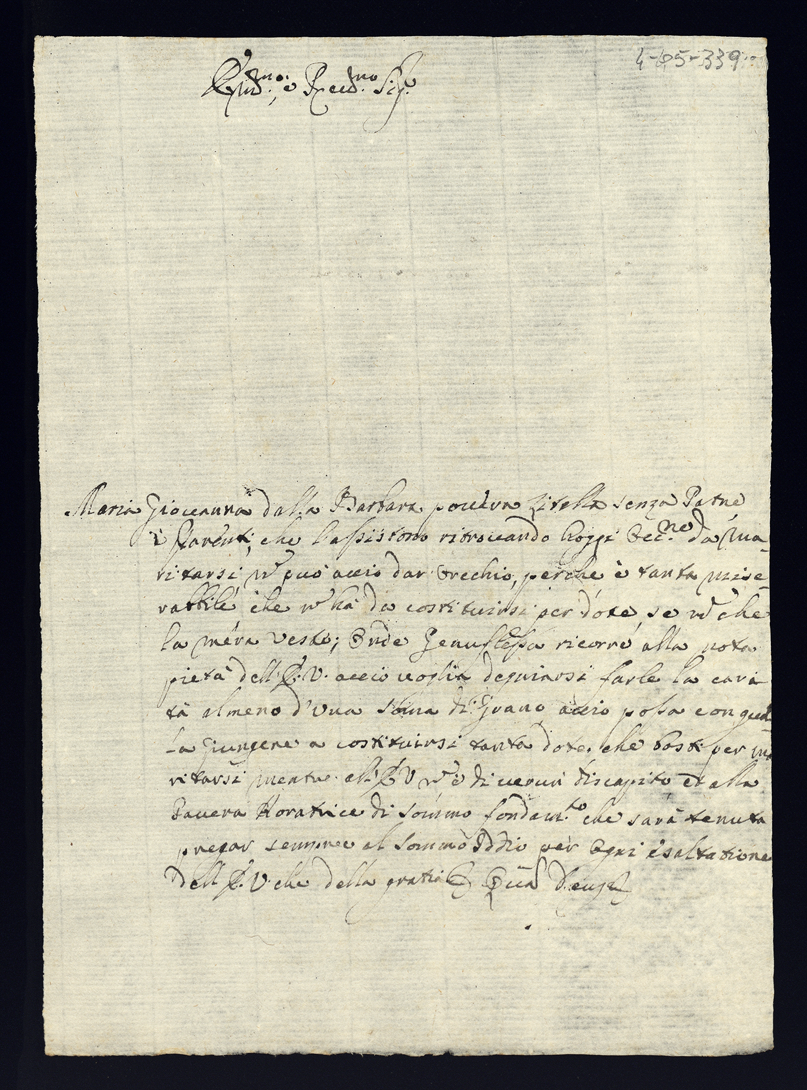 4-25-339
Ill.mo, e R.ev.mo Sig.r
Maria Giovanna dalla Barbara povera Zitella senza Patre
e Parenti, che l'assistono ritrovando hoggi occ.ne da ma-
ritarsi, n può acciò dar orecchio, perche è tanta mise-
rabbile che n hà da costituirsi per dote se n che
la mera veste; Onde Genuflessa ricorre alla nota
pietà dell V. acciò voglia degniarsi farle la cari-
tà almeno d'una soma di Grano acciò possa con quel-
la giungere a costituirsi tanta dote, che basti per ma
ritarsi mentre al V n è di verun discapito et alla
Povera Horatrice di sommo fondam.to che sarà tenuta
pregar sempre al sommo Iddio per ogni esaltatione
dell V. che della gratia Quā Deus